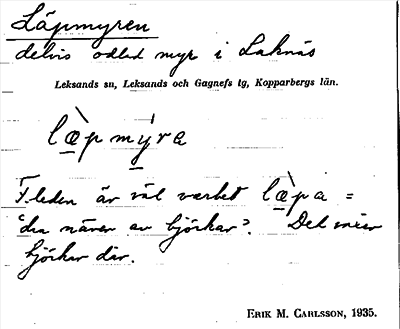 Läpmyren
delvis odlad myr i Laknäs
Leksands sn, Leksands och Gagnefs tg, Kopparbergs län.
læ̀pmy̠ra
F-leden är väl verbet læ̀pa =
"dra näver av björkar". Det växer
björkar där.
ERIK M. CARLSSON, 1935.